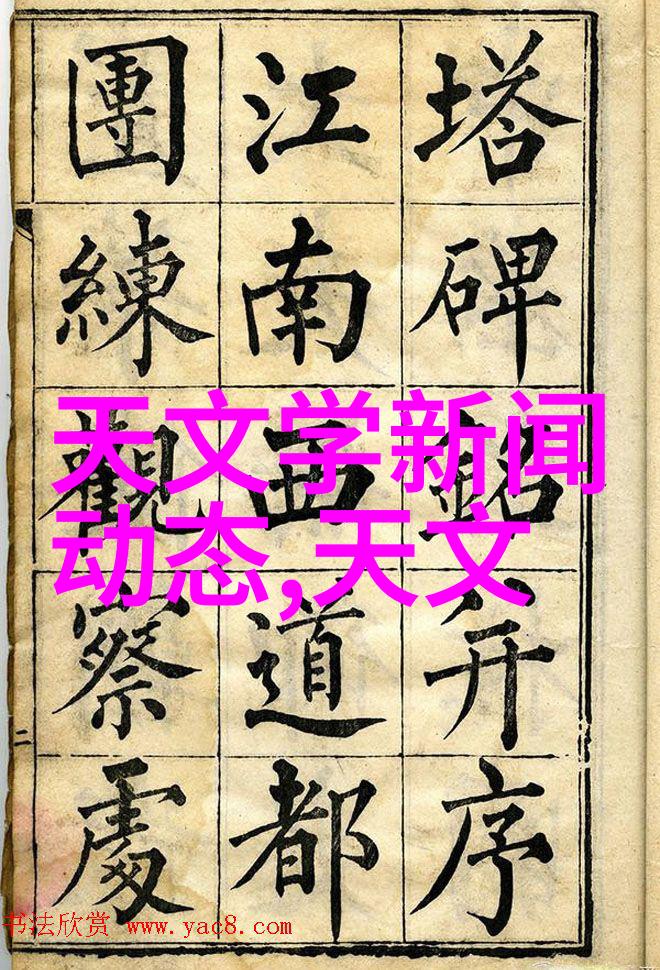 塔碑銘并序
江南西道都
團練觀察處
天文学新闻
动态,天文
二
书法欣赏 www.yac8.com